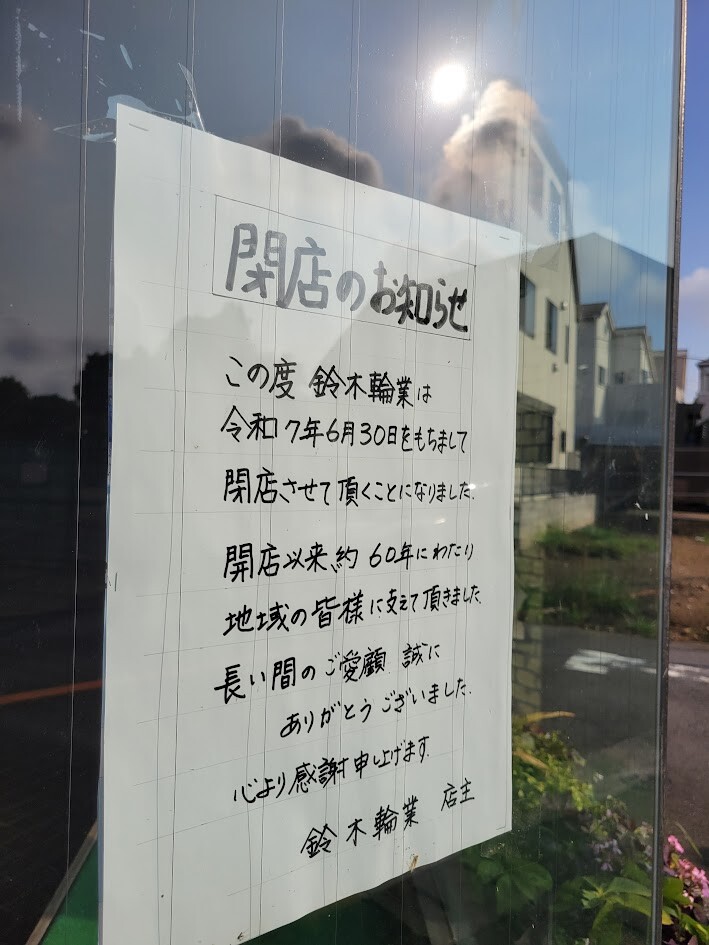 閉店のお知らせ
この度 鈴木輪業は
令和7年6月30日をもちまして
閉店させて頂くことになりました.
開店以来、約 60年にわたり
地域の皆様に支えて頂きました.
長い間のご愛顧 誠に
ありがとうございました.
心より感謝申し上げます.
鈴木輪業 店主